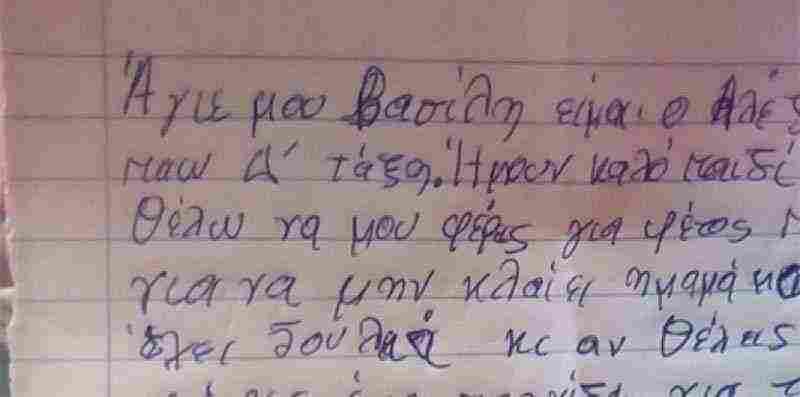 Άγιε μου Βασίλη είμαι ο Αλέξ
παω Δ' τάξη. Ήμουν καλό παιδί
Θέλω να μου φέρεις για φέτος
για να μην κλαίει η μαμά μο
έχει δουλειά κι αν θέλεις
για τ